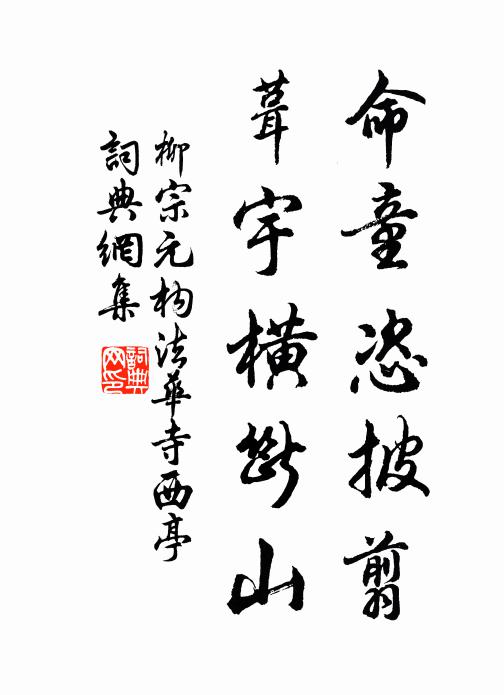 命童恣披翦
葺宇橫斷山
柳宗元构法華寺西亭
詞典網集
詞典網印